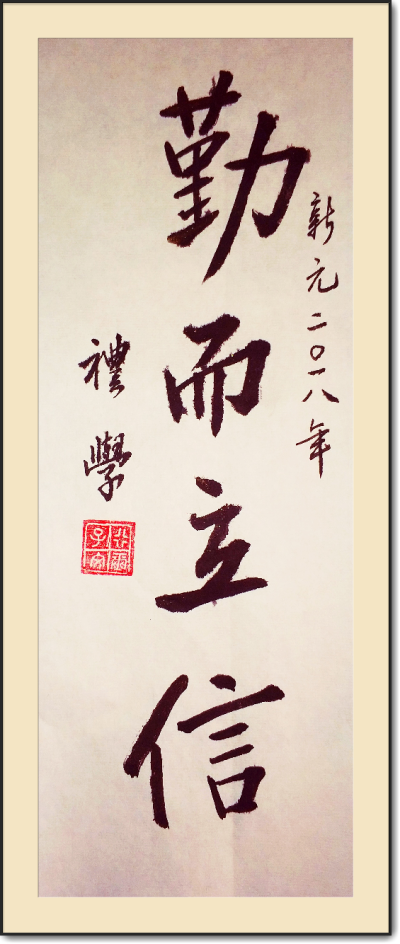 新元二〇一八年
勤而立信
禮學